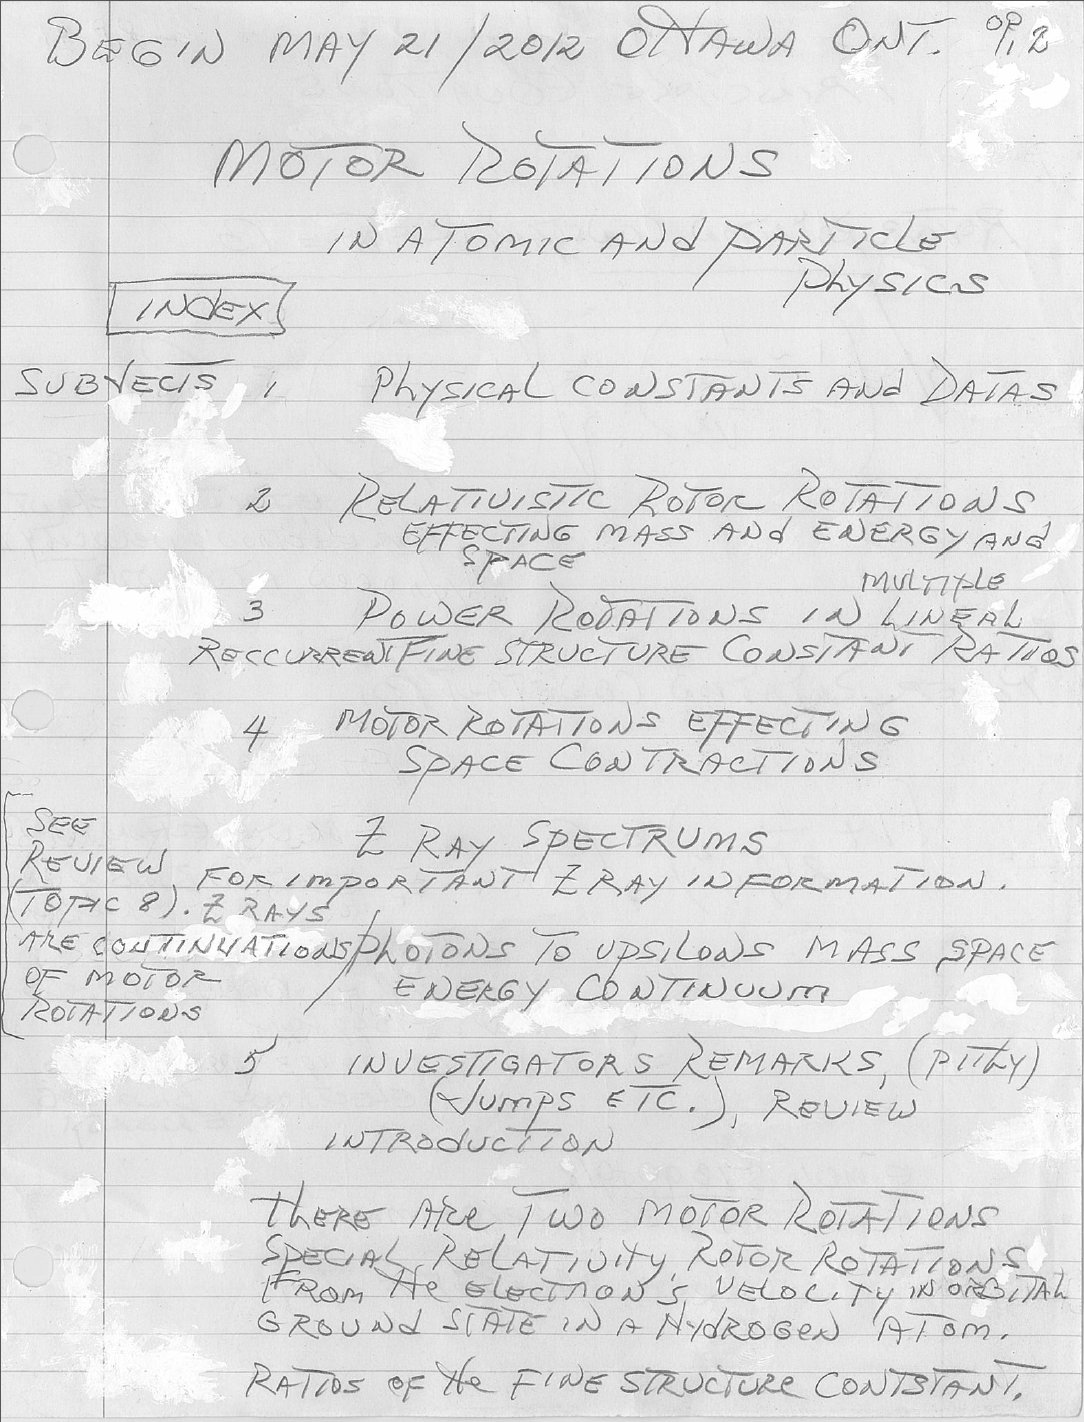 BEGIN MAY 21/2012 OTTAWA ONT. P.2
MOTOR ROTATIONS
IN ATOMIC AND PARTICLE
PHYSICS
INDEX
SUBJECTS 1 PHYSICAL CONSTANTS AND DATAS
2 RELATIVISTIC ROTOR ROTATIONS
EFFECTING MASS AND ENERGY AND
SPACE
MULTIPLE
3 POWER ROTATIONS IN LINEAL
RECCURRENT FINE STRUCTURE CONSTANT RATIOS
4 MOTOR ROTATIONS EFFECTING
SPACE CONTRACTIONS
SEE
REVIEW
(TOPIC 8). Z RAYS
ARE CONTINUATIONS
OF MOTOR
ROTATIONS
Z RAY SPECTRUMS
FOR IMPORTANT Z RAY INFORMATION.
PHOTONS TO UPSILONS MASS SPACE
ENERGY CONTINUUM
5 INVESTIGATORS REMARKS, (PITHY)
(JUMPS ETC.), REVIEW
INTRODUCTION
THERE ARE TWO MOTOR ROTATIONS
SPECIAL RELATIVITY ROTOR ROTATIONS
FROM THE ELECTRON'S VELOCITY IN ORBITAL
GROUND STATE IN A HYDROGEN ATOM.
RATIOS OF THE FINE STRUCTURE CONTSTANT.